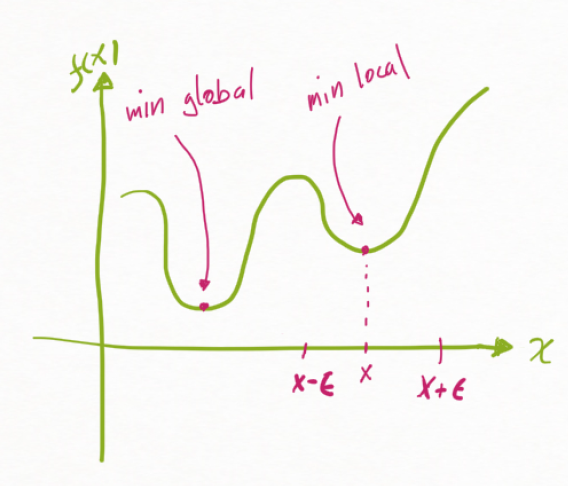 f(x)
min global
min local
x
x-ε
x
x+ε